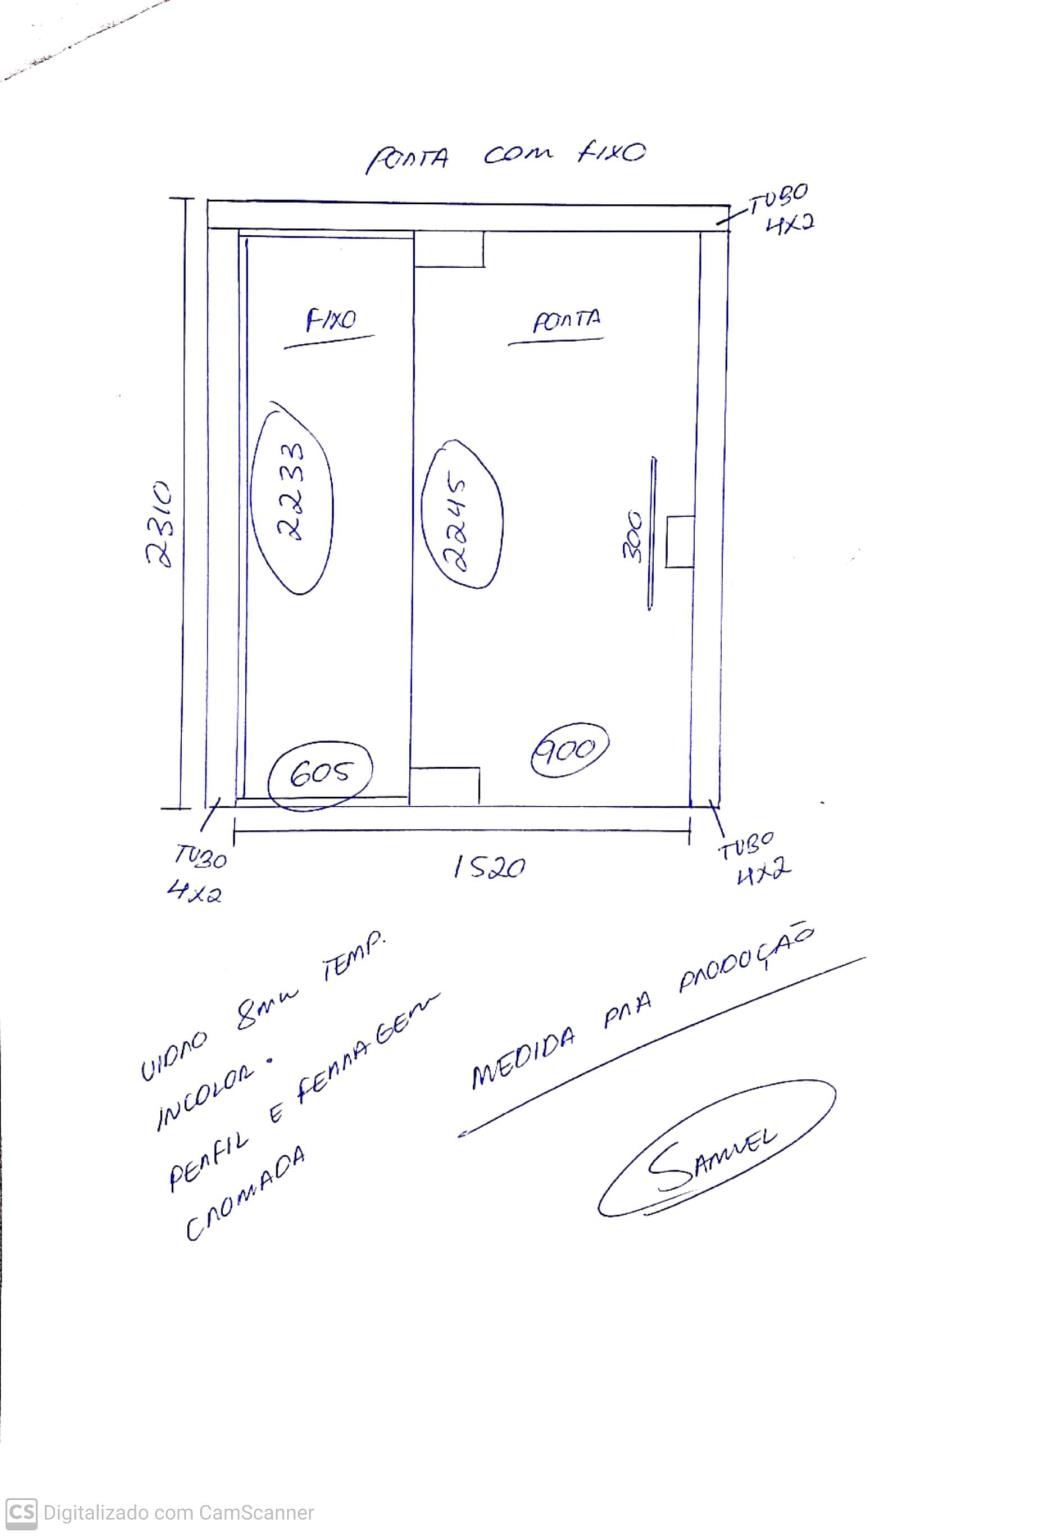 PORTA COM FIXO
TUBO
4X2
FIXO
PORTA
2310
2233
2245
300
605
900
TUBO
4X2
1520
TUBO
4X2
VIDRO 8mm TEMP.
INCOLOR.
PERFIL E FERRAGEM
CROMADA
MEDIDA PRA PRODUÇÃO
SAMUEL
CS Digitalizado com CamScanner